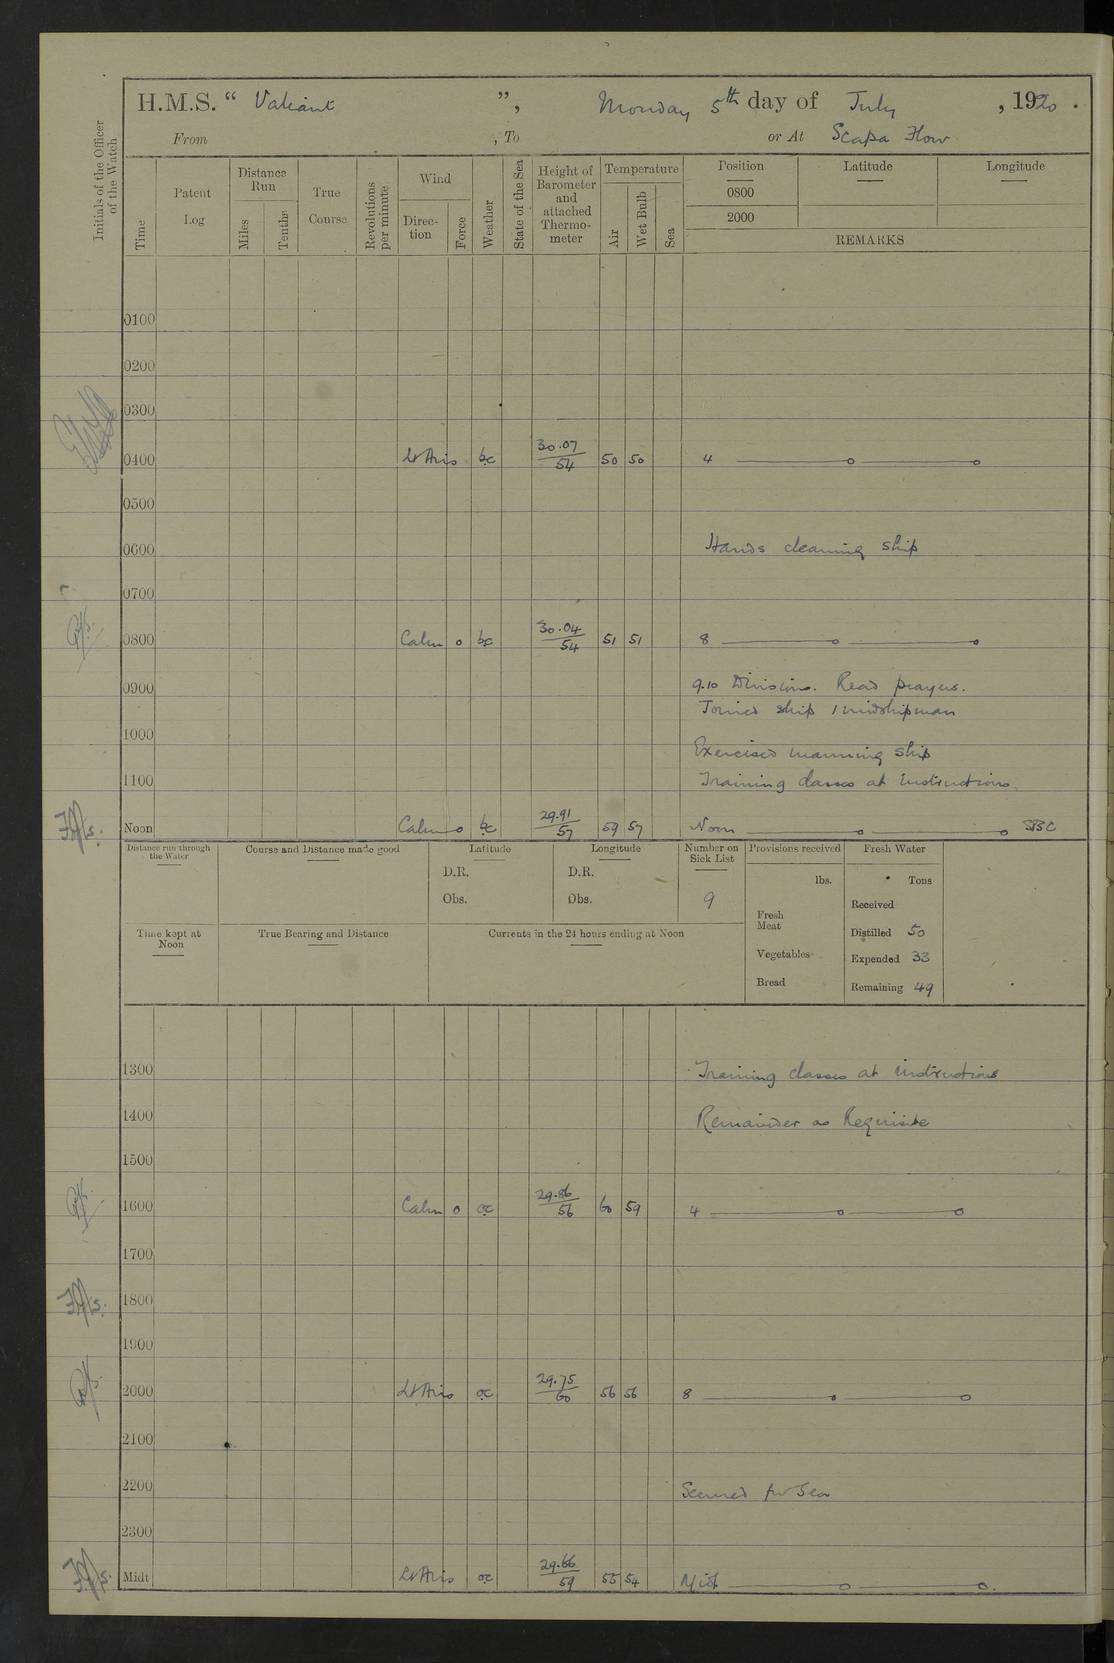 H.M.S. “ Valiant ”, Monday 5th day of July , 1920 .
From , To or At Scapa Flow
Initials of the Officer of the Watch
Time
Patent Log
Distance Run
Miles
Tenths
True Course
Revolutions per minute
Wind
Direc-tion
Force
Weather
State of the Sea
Height of Barometer and attached Thermo-meter
Temperature
Air
Wet Bulb
Sea
Position Latitude Longitude
0800
2000
REMARKS
0100
0200
0300
0400 Lt Airs bc 30.07/54 50 50 4
0500
0600 Hands cleaning ship
0700
0800 Calm 0 bc 30.04/54 51 51 8
0900 9.10 Divisions. Read prayers.
Joined ship 1 midshipman
1000 Exercised manning ship
1100 Training classes at instructions.
Noon Calm 0 bc 29.91/57 59 57 Noon
Distance run through the Water
Course and Distance made good
Latitude
D.R.
Obs.
Longitude
D.R.
Obs.
Number on Sick List
9
Provisions received
lbs.
Fresh Meat
Vegetables
Bread
Fresh Water
Tons
Received
Distilled 50
Expended 33
Remaining 49
Time kept at Noon
True Bearing and Distance
Currents in the 24 hours ending at Noon
1300 Training classes at instructions
1400 Remainder as Requisite
1500
1600 Calm 0 oc 29.86/56 60 59 4
1700
1800
1900
2000 Lt Airs oc 29.75/60 56 56 8
2100
2200 Secured for Sea
2300
Midt Lt Airs oc 29.66/59 55 54 Midt